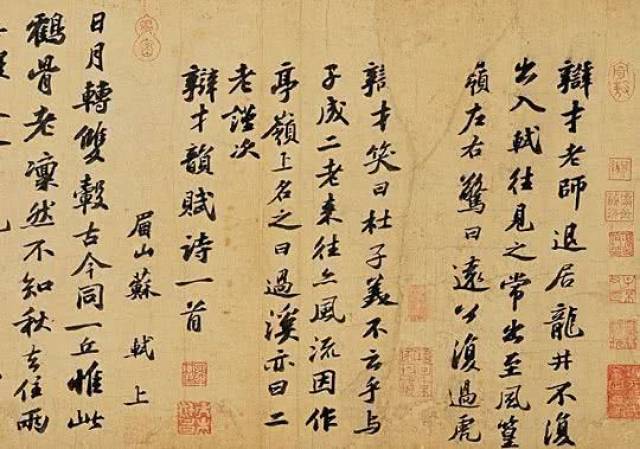 辯才老師退居龍井不復
出入軾往見之常出至風篁
嶺左右驚曰遠公復過虎
辯才笑曰杜子美不云乎與
子成二老来往亦風流因作
亭嶺上名之曰過溪亦曰二
老謹次
辯才韻賦詩一首
眉山蘇軾上
日月轉雙轂古今同一丘惟此
鶴骨老凜然不知秋去住兩